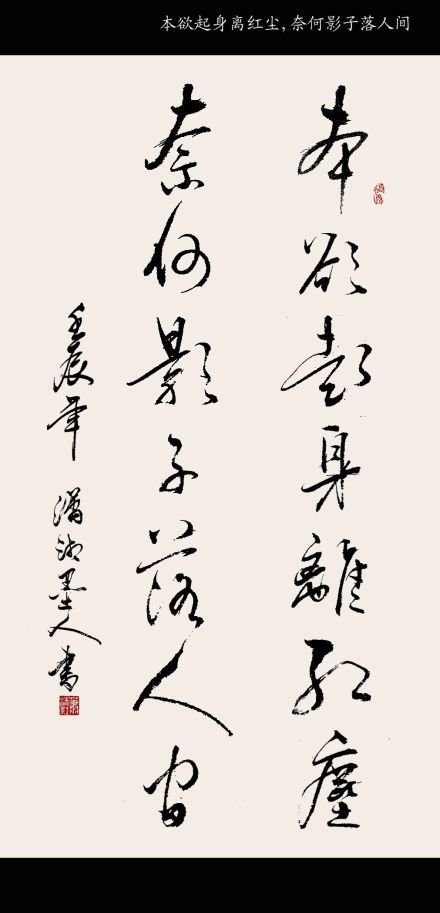 本欲起身离红尘，奈何影子落人间
本欲起身離红塵
奈何影子落人间
壬辰年 潇湘墨人书